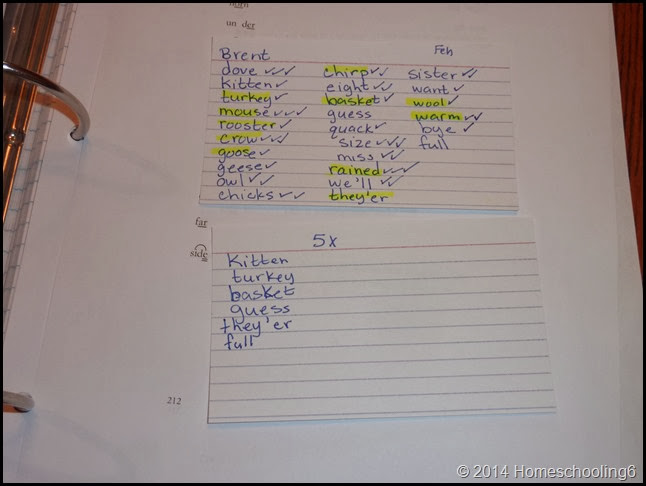 un der
Brent
Feh
dove ✓✓✓
Kitten ✓
turkey ✓
mouse ✓✓✓
rooster ✓
crow ✓✓✓
goose ✓
geese ✓
owl ✓✓
chicks ✓✓
chirp ✓✓
eight ✓✓
basket ✓
guess
quack ✓
size ✓✓✓
miss ✓✓
rained ✓✓✓
we'll ✓✓
they'er
sister ✓✓
want ✓
wool ✓
warm ✓✓
bye ✓
full
far
side
5x
Kitten
turkey
basket
guess
they'er
full
212
© 2014 Homeschooling6